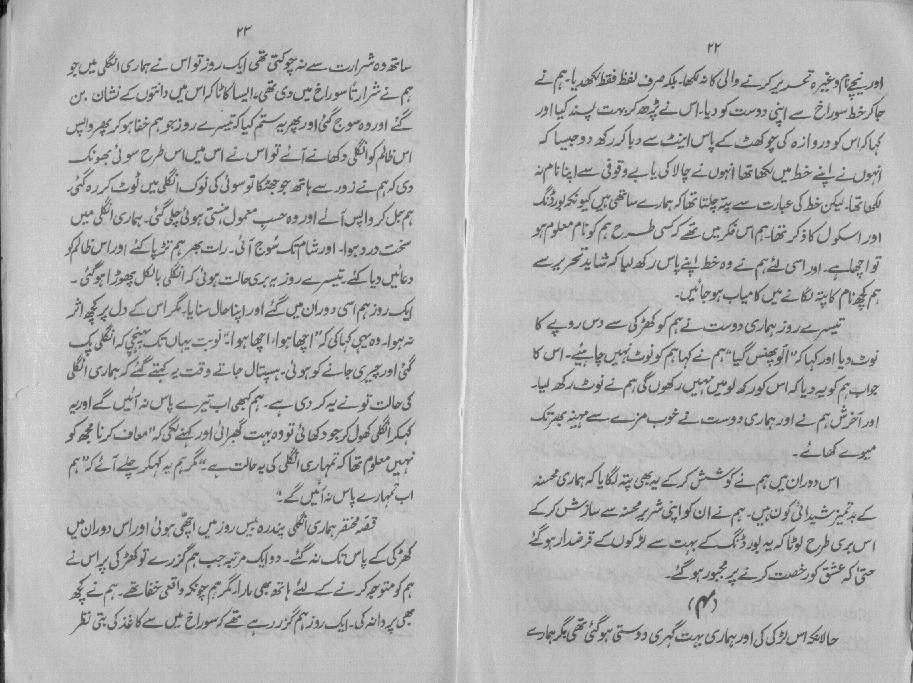 ۲۲
اور نیچے نام وغیرہ تحریر کرنے والی کا نہ لکھا۔ بلکہ صرف لفظ فقط لکھدیا۔ ہم نے
جا کر خط سوراخ سے اپنی دوست کو دیا۔ اس نے پڑھ کر بہت پسند کیا اور
کہا کہ اس کو دروازہ کی چوکھٹ کے پاس اینٹ سے دبا کر رکھ دو جیسا کہ
انہوں نے اپنے خط میں لکھا تھا انہوں نے چالاکی یا بے وقوفی سے اپنا نام نہ
لکھا تھا۔ لیکن خط کی عبارت سے پتہ چلتا تھا کہ ہمارے ساتھی ہیں کیونکہ بورڈنگ
اور اسکول کا ذکر تھا۔ ہم اس فکر میں تھے کہ کسی طرح ہم کو نام معلوم ہو
تو اچھا ہے۔ اور اسی لئے ہم نے وہ خط اپنے پاس رکھ لیا کہ شاید تحریر سے
ہم کچھ نام کا پتہ لگانے میں کامیاب ہو جائیں۔
تیسرے روز ہماری دوست نے ہم کو کھڑکی سے دس روپے کا
نوٹ دیا اور کہا کہ "اُلّو پھنس گیا" ہم نے کہا ہم کو نوٹ نہیں چاہئیے۔ اس کا
جواب ہم کو یہ دیا کہ اس کو رکھ لو میں نہیں رکھوں گی ہم نے نوٹ رکھ لیا۔
اور آخرش ہم نے اور ہماری دوست نے خوب مزے سے مہینہ بھر تک
میوے کھائے۔
اس دوران میں ہم نے کوشش کر کے یہ بھی پتہ لگایا کہ ہماری محسنہ
کے بدتمیز شیدائی کون ہیں۔ ہم نے ان کو اپنی شریر محسنہ سے سازش کر کے
اس بری طرح لوٹا کہ یہ بورڈنگ کے بہت سے لڑکوں کے قرضدار ہو گئے
حتیٰ کہ عشق کو رخصت کرنے پر مجبور ہو گئے۔
(۴)
حالانکہ اس لڑکی کی اور ہماری بہت گہری دوستی ہو گئی تھی مگر ہمارے
۲۳
ساتھ وہ شرارت سے نہ چوکتی تھی ایک روز تو اس نے ہماری انگلی میں جو
ہم نے شرارتاً سوراخ میں دی تھی، ایسا کاٹا کہ اس میں دانتوں کے نشان بن
گئے اور وہ سوج گئی اور پھر یہ ستم کیا کہ تیسرے روز جو ہم خفا ہو کر پھر واپس
اس ظالم کو انگلی دکھانے آئے تو اس نے اس میں اس طرح سوئی بھونک
دی کہ ہم نے زور سے ہاتھ جو جھٹکا تو سوئی کی نوک انگلی میں ٹوٹ کر رہ گئی۔
ہم جل کر واپس آئے اور وہ حسب معمول ہنستی ہوئی چلی گئی۔ ہماری انگلی میں
سخت درد ہوا۔ اور شام تک سُوج آئی۔ رات بھر ہم تڑپا کئے اور اس ظالم کو
دعائیں دیا کئے تیسرے روز یہ بری حالت ہوئی کہ انگلی بالکل پھوڑا ہو گئی۔
ایک روز ہم اسی دوران میں گئے اور اپنا حال سنایا۔ مگر اس کے دل پر کچھ اثر
نہ ہوا۔ وہ یہی کہا کی کہ "اچھا ہوا، اچھا ہوا" نوبت یہاں تک پہنچی کہ انگلی پک
گئی اور چیری جانے کو ہوئی۔ ہسپتال جاتے وقت یہ کہتے گئے کہ ہماری انگلی
کی حالت تو نے یہ کر دی ہے۔ ہم کبھی اب تیرے پاس نہ آئیں گے اور یہ
کہکر انگلی کھول کر جو دکھائی تو وہ بہت گھبرائی اور کہنے لگی کہ "معاف کرنا مجھ کو
نہیں معلوم تھا کہ تمہاری انگلی کی یہ حالت ہے۔" مگر ہم یہ کہکر چلے آئے کہ "ہم
اب تمہارے پاس نہ آئیں گے۔"
قصّہ مختصر ہماری انگلی پندرہ بیس روز میں اچھّی ہوئی اور اس دوران میں
کھڑکی کے پاس تک نہ گئے۔ دو ایک مرتبہ جب ہم گزرے تو کھڑکی پر اس نے
ہم کو متوجہ کرنے کے لئے ہاتھ بھی مارا۔ مگر ہم چونکہ واقعی خفا تھے۔ ہم نے کچھ
بھی پروا نہ کی۔ ایک روز ہم گزر رہے تھے کہ سوراخ میں سے کاغذ کی بتی نظر